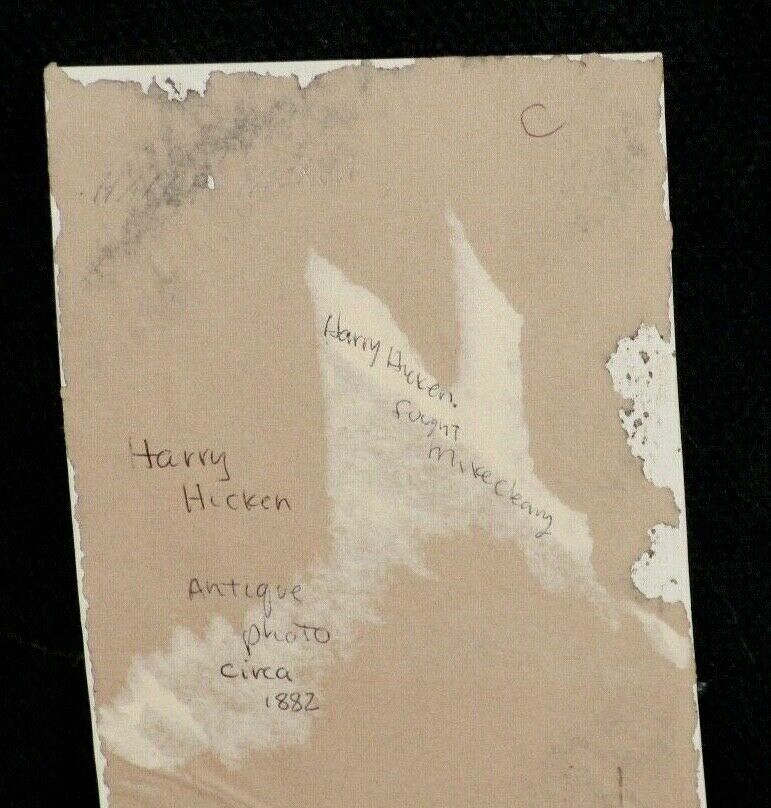 C
Harry Hicken.
fought
Mike Cleary
Harry
Hicken
Antique
photo
circa
1882